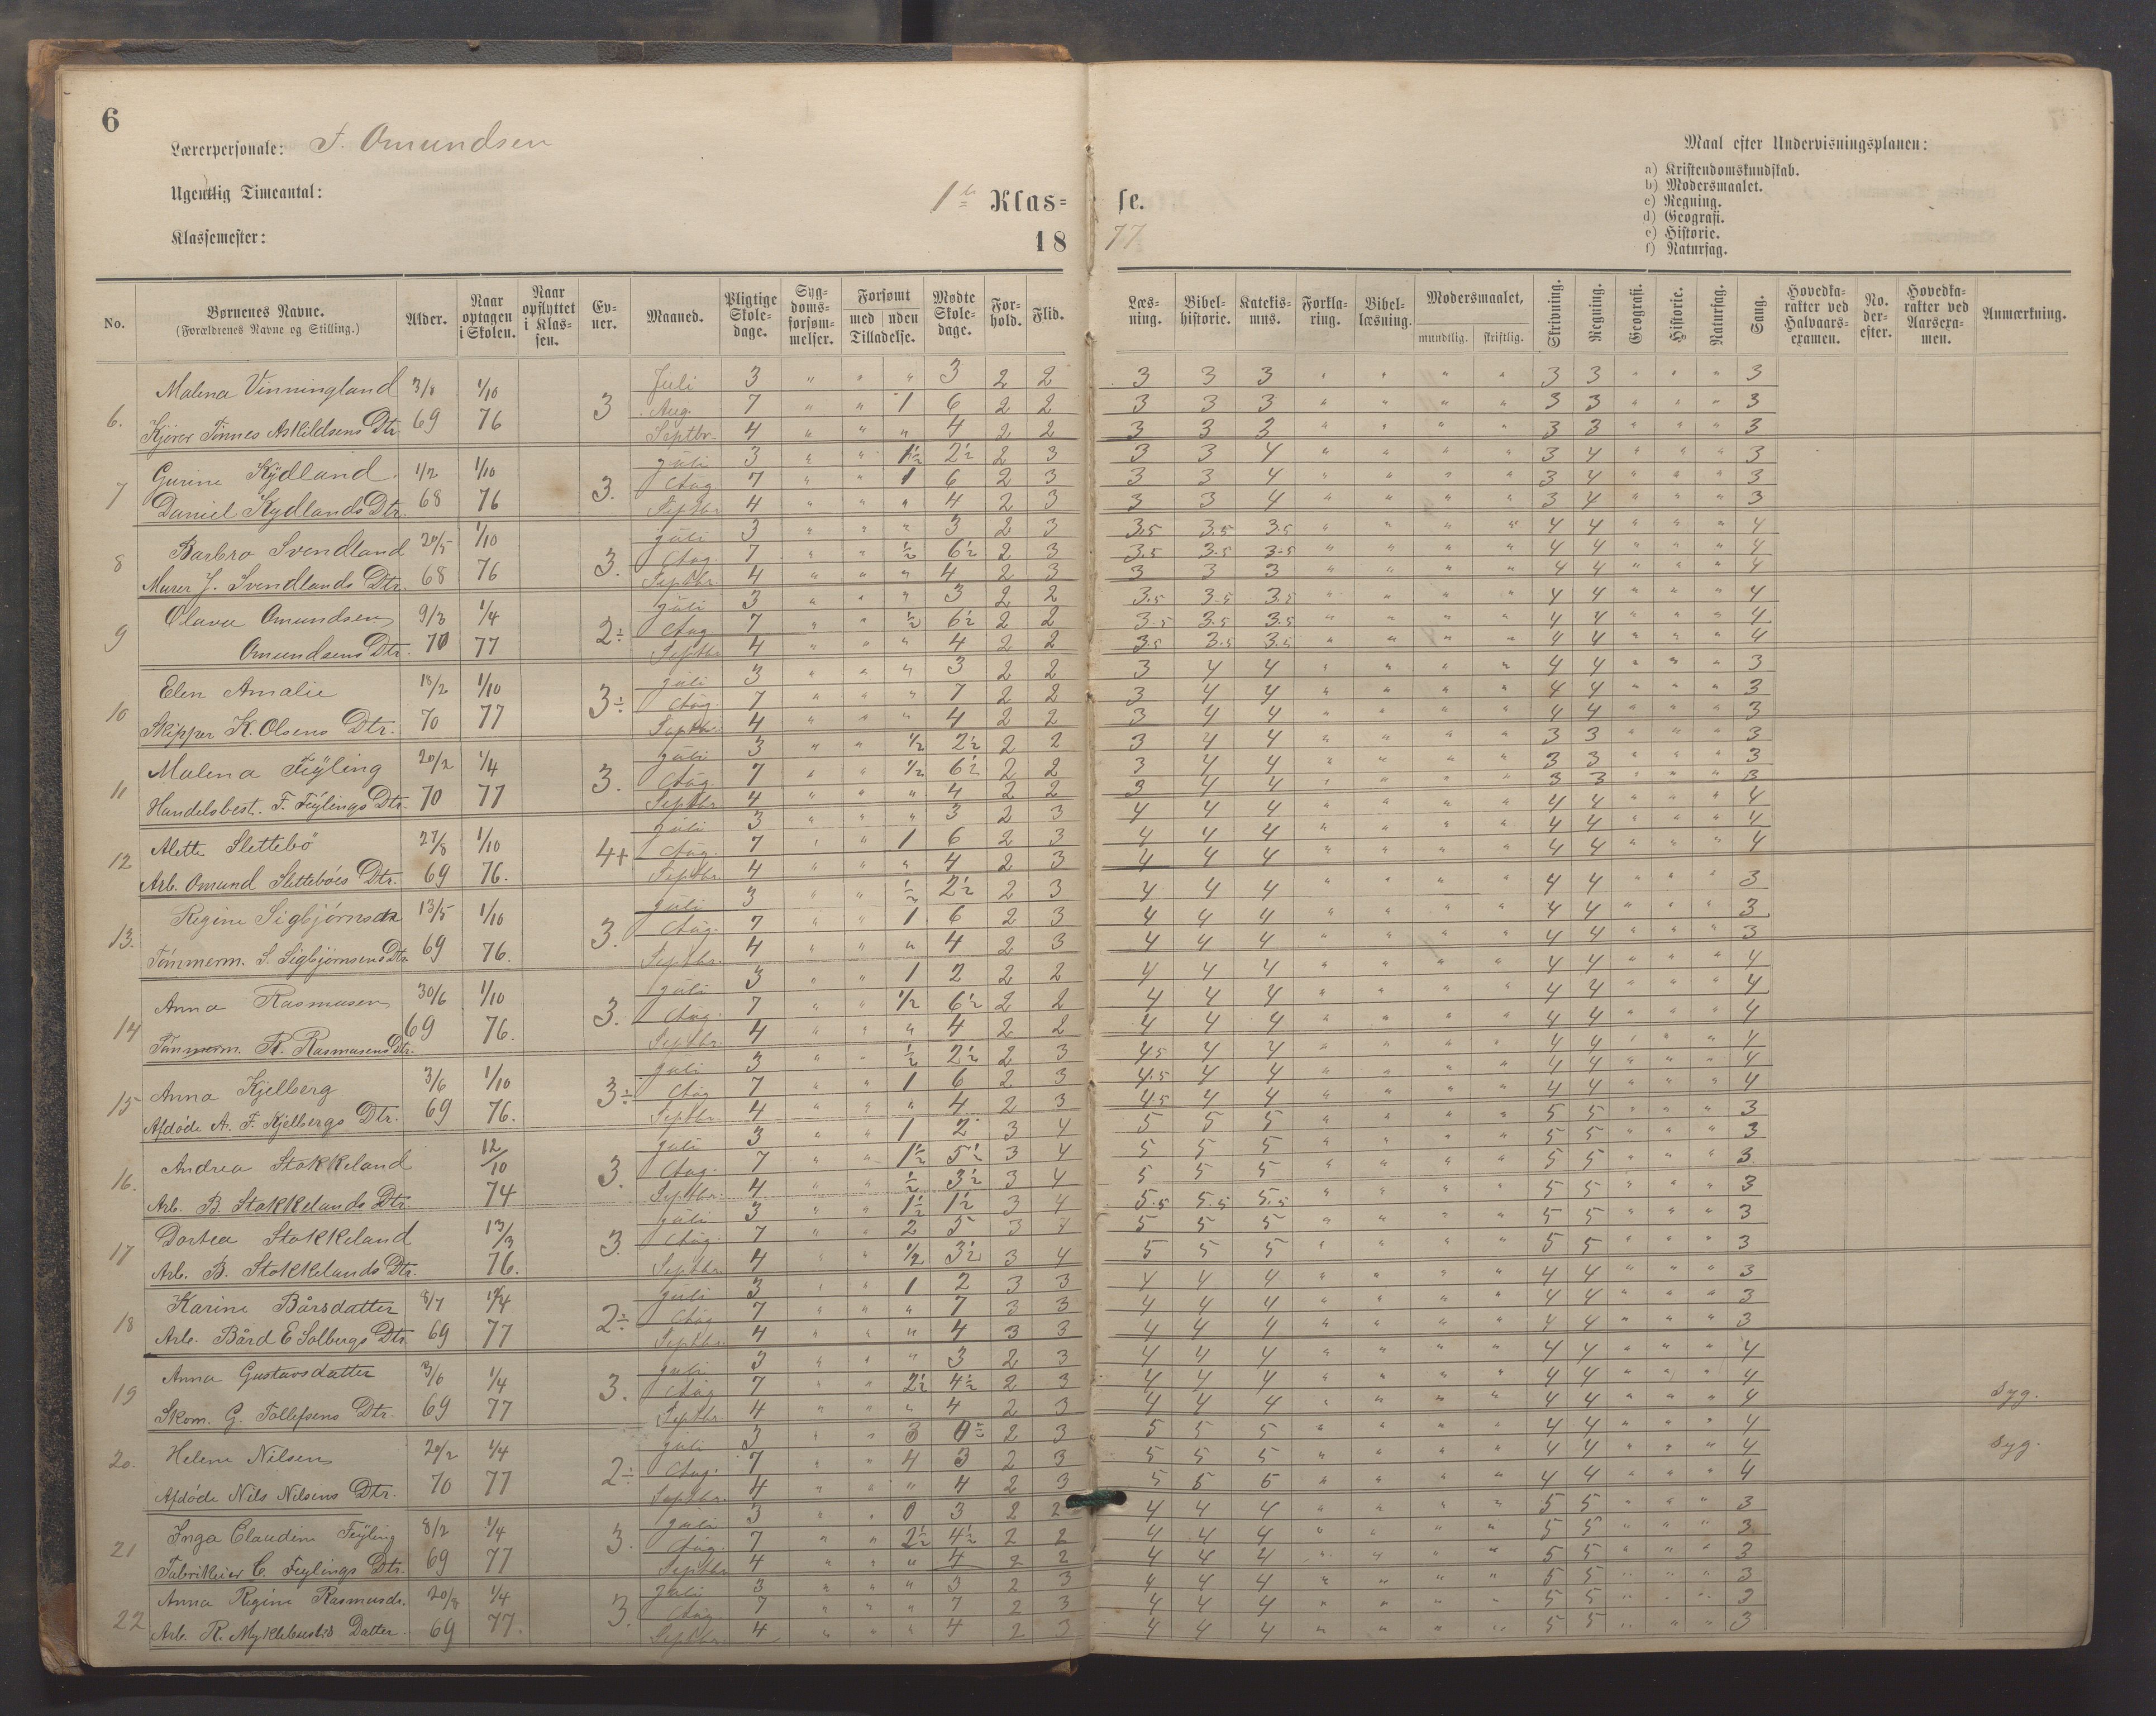 6
Lærerpersonale: F. Omundsen
Ugentlig Timeantal:
Klassemester:
1ste Klas= se.
18 77
Maal efter Undervisningsplanen:
a) Kristendomskundskab.
b) Modersmaalet.
c) Regning.
d) Geografi.
e) Historie.
f) Naturfag.
No. Børnenes Navne. (Forældrenes Navne og Stilling.) Alder. Naar optagen i Skolen. Naar opflyttet i Klassen. Evner. Maaned. Pligtige Skoledage. Sygdomsforsømmelser. Forsømt med uden Tilladelse. Mødte Skoledage. Forhold. Flid. Læsning. Bibelhistorie. Katekismus. Forklaring. Bibellæsning. Modersmaalet, mundtlig. skriftlig. Skrivning. Regning. Geografi. Historie. Naturfag. Sang. Hovedkarakter ved Halvaarsexamen. No. derefter. Hovedkarakter ved Aarsexamen. Anmærkning.
6. Malena Vinningland 3/8 69 1/10 76 3 Juli 3 " " " 3 2 2 3 3 3 " " " " 3 3 " " " 3
Aug. 7 " " 1 6 2 2 3 3 3 " " " " 3 3 " " " 3
Kjører Tønnes Askildsens Dtr. Septbr. 4 " " " 4 2 2 3 3 3 " " " " 3 3 " " " 3
7 Gurine Kydland. 1/2 68 1/10 76 3. Juli 3 " " 1/2 2½ 2 3 3 3 4 " " " " 3 4 " " " 3
Aug 7 " " 1 6 2 3 3 3 4 " " " " 3 4 " " " 3
Daniel Kydlands Dtr. Septbr 4 " " " 4 2 3 3 3 4 " " " " 3 4 " " " 3
8 Barbro Svendland 20/5 68 1/10 76 3. Juli 3 " " " 3 2 3 3.5 3.5 3.5 " " " " 4 4 " " " 4
Aug. 7 " " ½ 6½ 2 3 3.5 3.5 3.5 " " " " 4 4 " " " 4
Murer J. Svendlands Dtr. Septbr. 4 " " " 4 2 3 3 3 3 " " " " 4 4 " " " 4
9 Olava Omundsen 9/3 70 1/4 77 2÷ Juli 3 " " " 3 2 2 3.5 3.5 3.5 " " " " 4 4 " " " 4
Aug 7 " " ½ 6½ 2 2 3.5 3.5 3.5 " " " " 4 4 " " " 4
Omundsens Dtr. Septbr 4 " " " 4 2 2 3.5 3.5 3.5 " " " " 4 4 " " " 4
10 Elen Amalie 18/2 70 1/10 77 3÷ Juli 3 " " " 3 2 2 3 4 4 " " " " 4 4 " " " 3
Aug. 7 " " " 7 2 2 3 4 4 " " " " 4 4 " " " 3
Skipper K. Olsens Dtr. Septbr. 4 " " " 4 2 2 3 4 4 " " " " 4 4 " " " 3
11 Malena Feÿling 20/2 70 1/4 77 3. Juli 3 " " ½ 2½ 2 2 3 4 4 " " " " 3 3 " " " 3
Aug 7 " " ½ 6½ 2 2 3 4 4 " " " " 3 3 " " " 3
Handelsbest. F. Feÿlings Dtr. Septbr 4 " " " 4 2 2 3 4 4 " " " " 3 3 " " " 3
12 Alette Slettebö 27/8 69 1/10 76. 4+ Juli 3 " " " 3 2 3 4 4 4 " " " " 4 4 " " " 4
Aug. 7 " " 1 6 2 3 4 4 4 " " " " 4 4 " " " 4
Arb. Omund Slettebøes Dtr. Septbr. 4 " " " 4 2 3 4 4 4 " " " " 4 4 " " " 4
13. Regine Sigbjørnsdtr 13/5 69 1/10 76. 3. Juli 3 " " ½ 2½ 2 3 4 4 4 " " " " 4 4 " " " 3
Aug. 7 " " 1 6 2 3 4 4 4 " " " " 4 4 " " " 3
Tømmerm. S. Sigbjørnsens Dtr. Septbr. 4 " " " 4 2 3 4 4 4 " " " " 4 4 " " " 3
14 Anna Rasmusen 30/6 69 1/10 76. 3. Juli 3 " " 1 2 2 2 4 4 4 " " " " 4 4 " " " 4
Aug. 7 " " ½ 6½ 2 2 4 4 4 " " " " 4 4 " " " 4
Tømmerm. R. Rasmusens Dtr. Septbr. 4 " " " 4 2 2 4 4 4 " " " " 4 4 " " " 4
15 Anna Kjelberg 3/6 69 1/10 76. 3÷ Juli 3 " " ½ 2½ 2 3 4.5 4 4 " " " " 4 4 " " " 4
Aug 7 " " 1 6 2 3 4.5 4 4 " " " " 4 4 " " " 4
Afdøde A. F. Kjelbergs Dtr. Septbr. 4 " " " 4 2 3 4.5 4 4 " " " " 4 4 " " " 4
16. Andrea Stokkeland 12/10 74 3. Juli 3 " " 1 2 3 4 5 5 5 " " " " 5 5 " " " 3
Aug. 7 " " 1½ 5½ 3 4 5 5 5 " " " " 5 5 " " " 3
Arb. B. Stokkelands Dtr. Septbr. 4 " " ½ 3½ 3 4 5 5 5 " " " " 5 5 " " " 3
17 Dortea Stokkeland 13/3 76. 3. Juli 3 " " 1½ 1½ 3 4 5.5 5.5 5.5 " " " " 5 5 " " " 3
Aug. 7 " " 2 5 3 4 5 5 5 " " " " 5 5 " " " 3
Arb. B. Stokkelands Dtr. Septbr. 4 " " ½ 3½ 3 4 5 5 5 " " " " 5 5 " " " 3
18 Karine Bårsdatter 8/7 69 77 2÷ Juli 3 " " 1 2 3 3 4 4 4 " " " " 4 4 " " " 3
Aug 7 " " " 7 3 3 4 4 4 " " " " 4 4 " " " 3
Arb. Bård E Solbergs Dtr. Septbr. 4 " " " 4 3 3 4 4 4 " " " " 4 4 " " " 3
19 Anna Gustavsdatter 3/6 69 1/4 77 3. Juli 3 " " " 3 2 3 4 4 4 " " " " 4 4 " " " 4
Aug 7 " " 2½ 4½ 2 3 4 4 4 " " " " 4 4 " " " 4
Skom. G. Tollefsens Dtr. Septbr 4 " " " 4 2 3 4 4 4 " " " " 4 4 " " " 4 Syg.
20. Helene Nilsen 20/2 70 1/4 77 2÷ Juli 3 " " 3 0 2 3 5 5 5 " " " " 4 4 " " " 4
Aug. 7 " " 4 3 2 3 5 5 5 " " " " 4 4 " " " 4 Syg.
Afdøde Nils Nilsens Dtr. Septbr. 4 " " " 4 2 3 5 5 5 " " " " 4 4 " " " 4
21 Inga Claudine Feÿling 8/2 69 1/4 77 3. Juli 3 " " 0 3 2 2 4 4 4 " " " " 5 5 " " " 3
Aug. 7 " " 2½ 4½ 2 2 4 4 4 " " " " 5 5 " " " 3
Fabrikeier C. Feylings Dtr. Septbr 4 " " " 4 2 2 4 4 4 " " " " 5 5 " " " 3
22 Anna Regine Rasmusdr. 20/8 69 1/4 77. 3. Juli 3 " " " 3 2 3 4 4 4 " " " " 5 5 " " " 3
Aug. 7 " " " 7 2 3 4 4 4 " " " " 5 5 " " " 3
Arb. R. Myklebusts Datter. Septbr. 4 " " " 4 2 3 4 4 4 " " " " 5 5 " " " 3